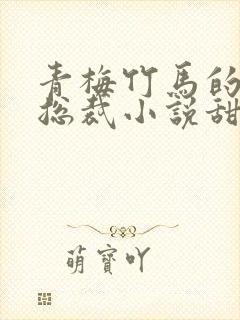 青梅竹馬的
总裁小説甜
萌寶吖